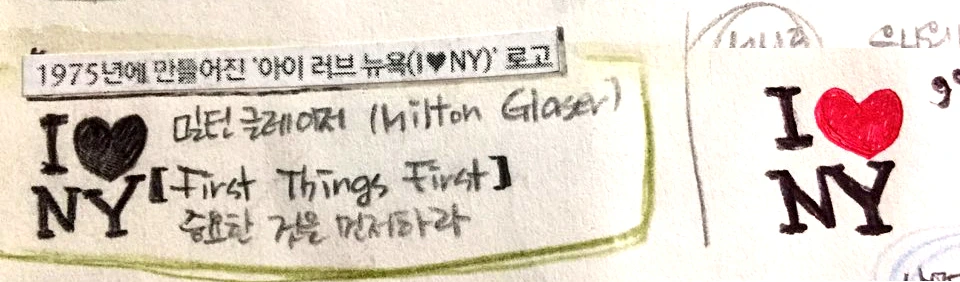 1975년에 만들어진 '아이 러브 뉴욕(I♥NY)' 로고
I♥
NY
밀턴 글레이저 (Milton Glaser)
[First Things First]
중요한 것을 먼저하라
I♥
NY